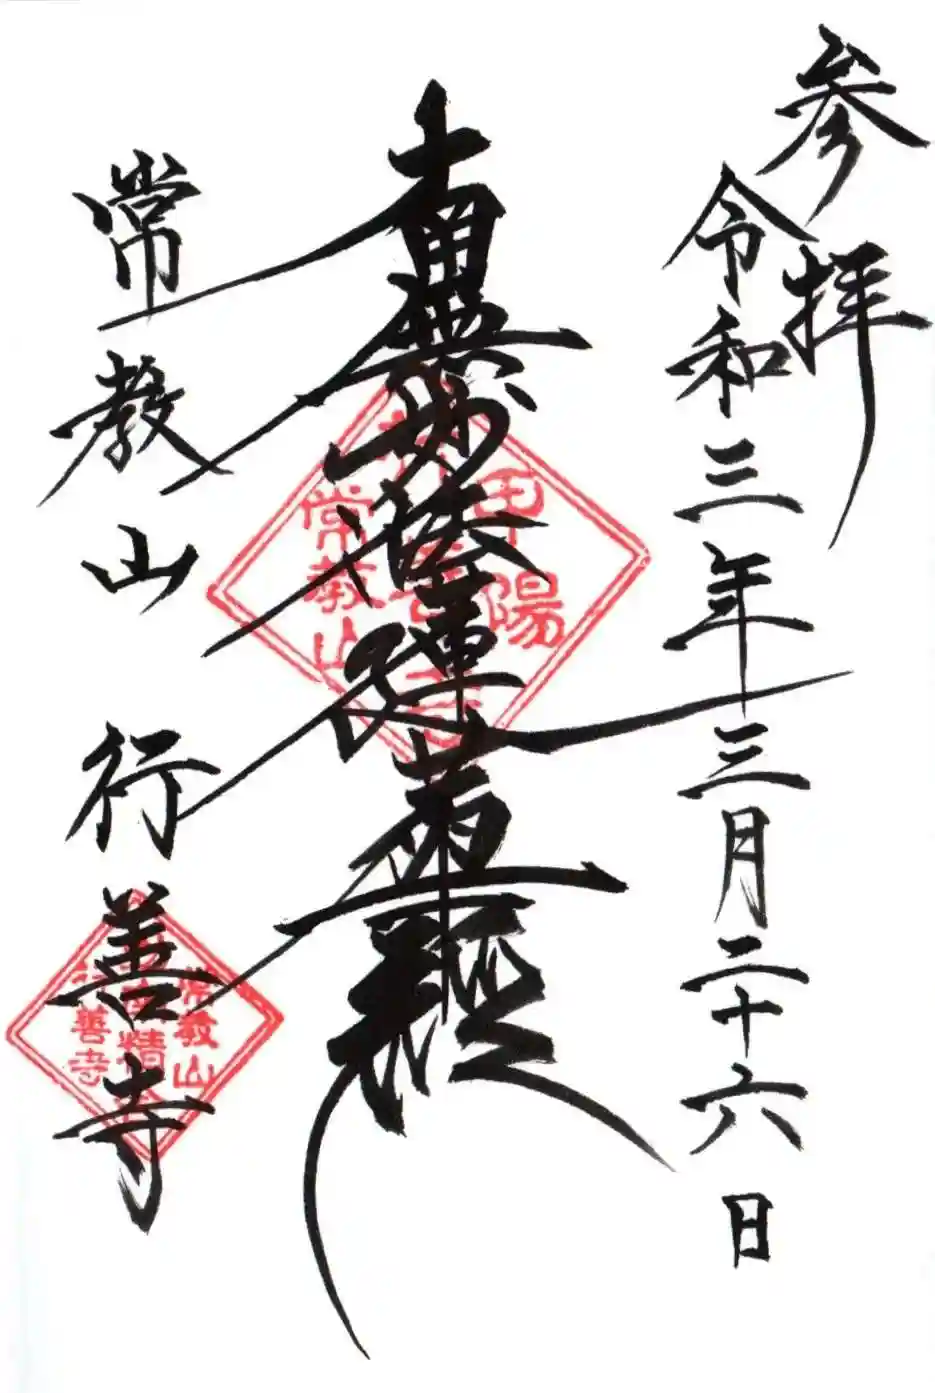 参拝
令和三年三月二十六日
南無妙法蓮華経
常教山 行善寺
甲陽
常教山
常教山
行善寺